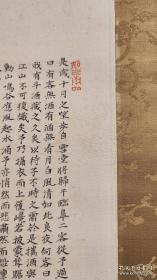 是歲十月之望步自雪堂將歸于臨皋二客從予過
曰有客無酒有酒無肴月白風清如此良夜何客曰
我有斗酒藏之久矣以待子不時之需於是攜酒與
江山不可復識矣予乃攝衣而上履巉岩披蒙茸踞
動山鳴谷應風起水涌予亦悄然而悲肅然而